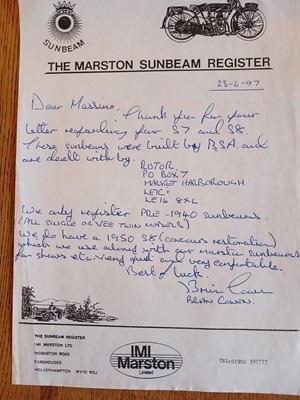 SUNBEAM
THE MARSTON SUNBEAM REGISTER
23-6-97
Dear Massimo,
Thank you for your
letter regarding your S7 and S8.
These sunbeams were built by BSA and
are dealt with by.
ROTOR,
PO BOX 7
MARKET HARBOROUGH
LEICS
LE16 8XL
We only register PRE-1940 sunbeams.
(ALL SINGLE OR VEE TWIN MODELS)
We do have a 1950 S8 (concours restoration)
which we use along with our marston sunbeams
for shows etc. very quiet and very comfortable.
Best of luck.
Brian Cowen
BRIAN COWEN.
THE SUNBEAM REGISTER
IMI MARSTON LTD
WOBASTON ROAD
FORDHOUSES
WOLVERHAMPTON WV10 6QJ
IMI
Marston
Limited
TEL: 01902 397777